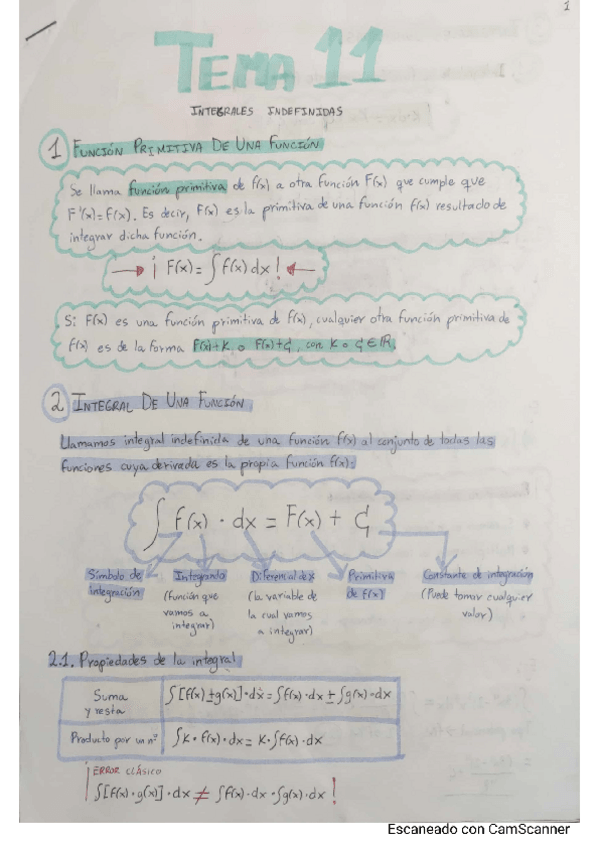 1
TEMA 11
INTEGRALES INDEFINIDAS
1 FUNCIÓN PRIMITIVA DE UNA FUNCIÓN
Se llama función primitiva de f(x) a otra función F(x) que cumple que
F'(x)=f(x). Es decir, F(x) es la primitiva de una función f(x) resultado de
integrar dicha función.
→ ¡ F(x) = ∫f(x)dx ! ←
Si F(x) es una función primitiva de f(x), cualquier otra función primitiva de
f(x) es de la forma F(x)+K o F(x)+C, con K o C ∈ ℝ.
2 INTEGRAL DE UNA FUNCIÓN
Llamamos integral indefinida de una función f(x) al conjunto de todas las
funciones cuya derivada es la propia función f(x):
∫ f(x) · dx = F(x) + C
Símbolo de integración
Integrando (función que vamos a integrar)
Diferencial de x (la variable de la cual vamos a integrar)
Primitiva de f(x)
Constante de integración (Puede tomar cualquier valor)
2.1. Propiedades de la integral
Suma y resta ∫[f(x)±g(x)]·dx = ∫f(x)·dx ± ∫g(x)·dx
Producto por un nº ∫K·f(x)·dx = K·∫f(x)·dx
¡ ERROR CLÁSICO
∫[f(x)·g(x)]·dx ≠ ∫f(x)·dx·∫g(x)·dx !
Escaneado con CamScanner